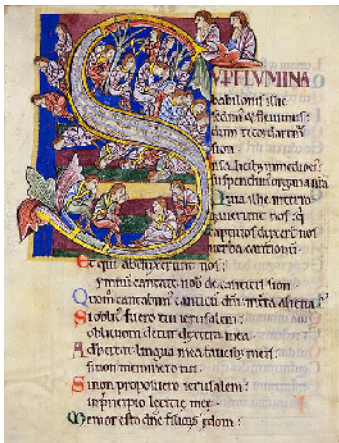 SUPER FLUMINA
babilonis illic
sedimus & fleuimus:
dum recordaremur
sion.
In salicibus in medio eius:
suspendimus organa nostra
Quia illic interro
gauerunt nos: q
captiuos duxerunt nos
uerba cantionu.
Et qui abduxerunt nos:
ymnu cantate nob de canticis sion.
Quom cantabim canticu dni: in tra aliena:
Si oblit fuero tui ierusalem:
obliuioni detur dextera mea.
Adhereat lingua mea faucib; meis:
si non meminero tui.
Si non proposuero ierusalem:
in principio leticie mee.
Memor esto dne filioru edom: